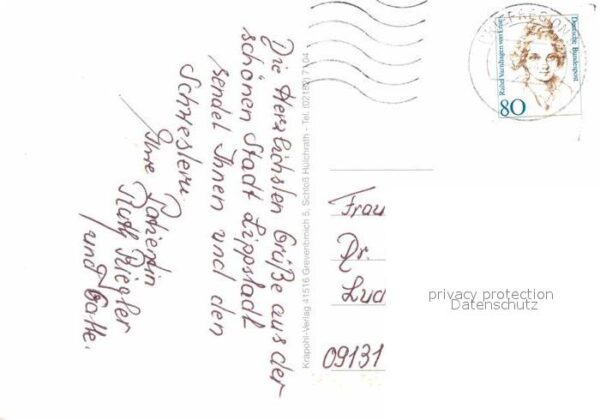 Die Herzlichsten Grüße aus der
schönen Stadt Lippstadt
sendet Ihnen und den
Schwestern
Ihre Patientin
Ruth Riegler
und Gatte.
Krapohl-Verlag 41516 Grevenbroich 5, Schloß Hülchrath - Tel. (02182) 71 04
Deutsche Bundespost
Rahel Varnhagen von Ense
80
Frau
Dr.
Lud
09131
privacy protection
Datenschutz